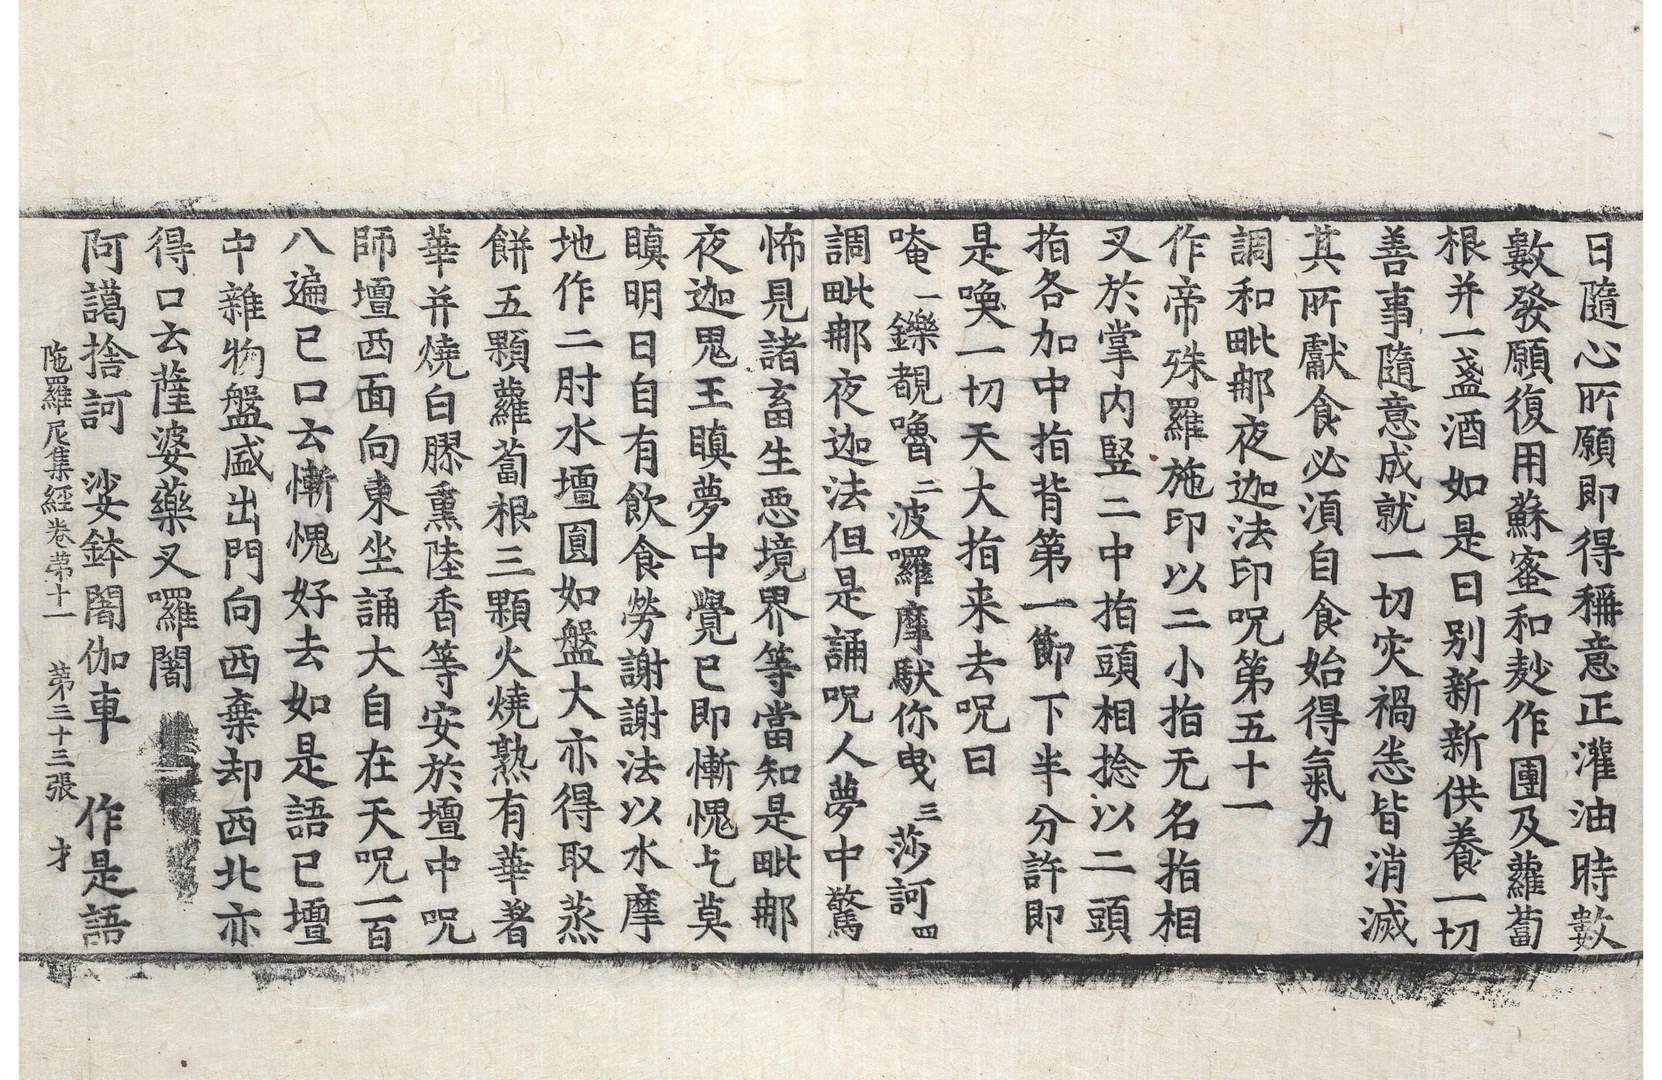 日隨心所願即得稱意正灌油時數
數發願復用蘇蜜和麨作團及蘿蔔
根并一盞酒如是日別新新供養一切
善事隨意成就一切灾禍恙皆消滅
其所獻食必湏自食始得氣力
調和毗那夜迦法印呪第五十一
作帝殊羅施印以二小指无名指相
叉於掌內竪二中指頭相捻以二頭
指各加中指背第一節下半分許即
是喚一切天大指来去呪曰
唵一鑠覩嚕二波囉摩馱你曳三莎訶四
調毗那夜迦法但是誦呪人夢中驚
怖見諸畜生惡境界等當知是毗那
夜迦鬼王瞋夢中覺已即慚愧乞莫
瞋明日自有飲食勞謝謝法以水摩
地作二肘水壇圓如盤大亦得取蒸
餅五顆蘿蔔根三顆火燒熟有華著
華并燒白膠熏陸香等安於壇中呪
師壇西面向東坐誦大自在天呪一百
八遍已口云慚愧好去如是語已壇
中雜物盤盛出門向西棄却西北亦
得口云薩婆藥叉囉闍
阿謁捨訶 娑鉢闍伽車 作是語
陁羅尼集經卷苐十一 苐三十三張 才